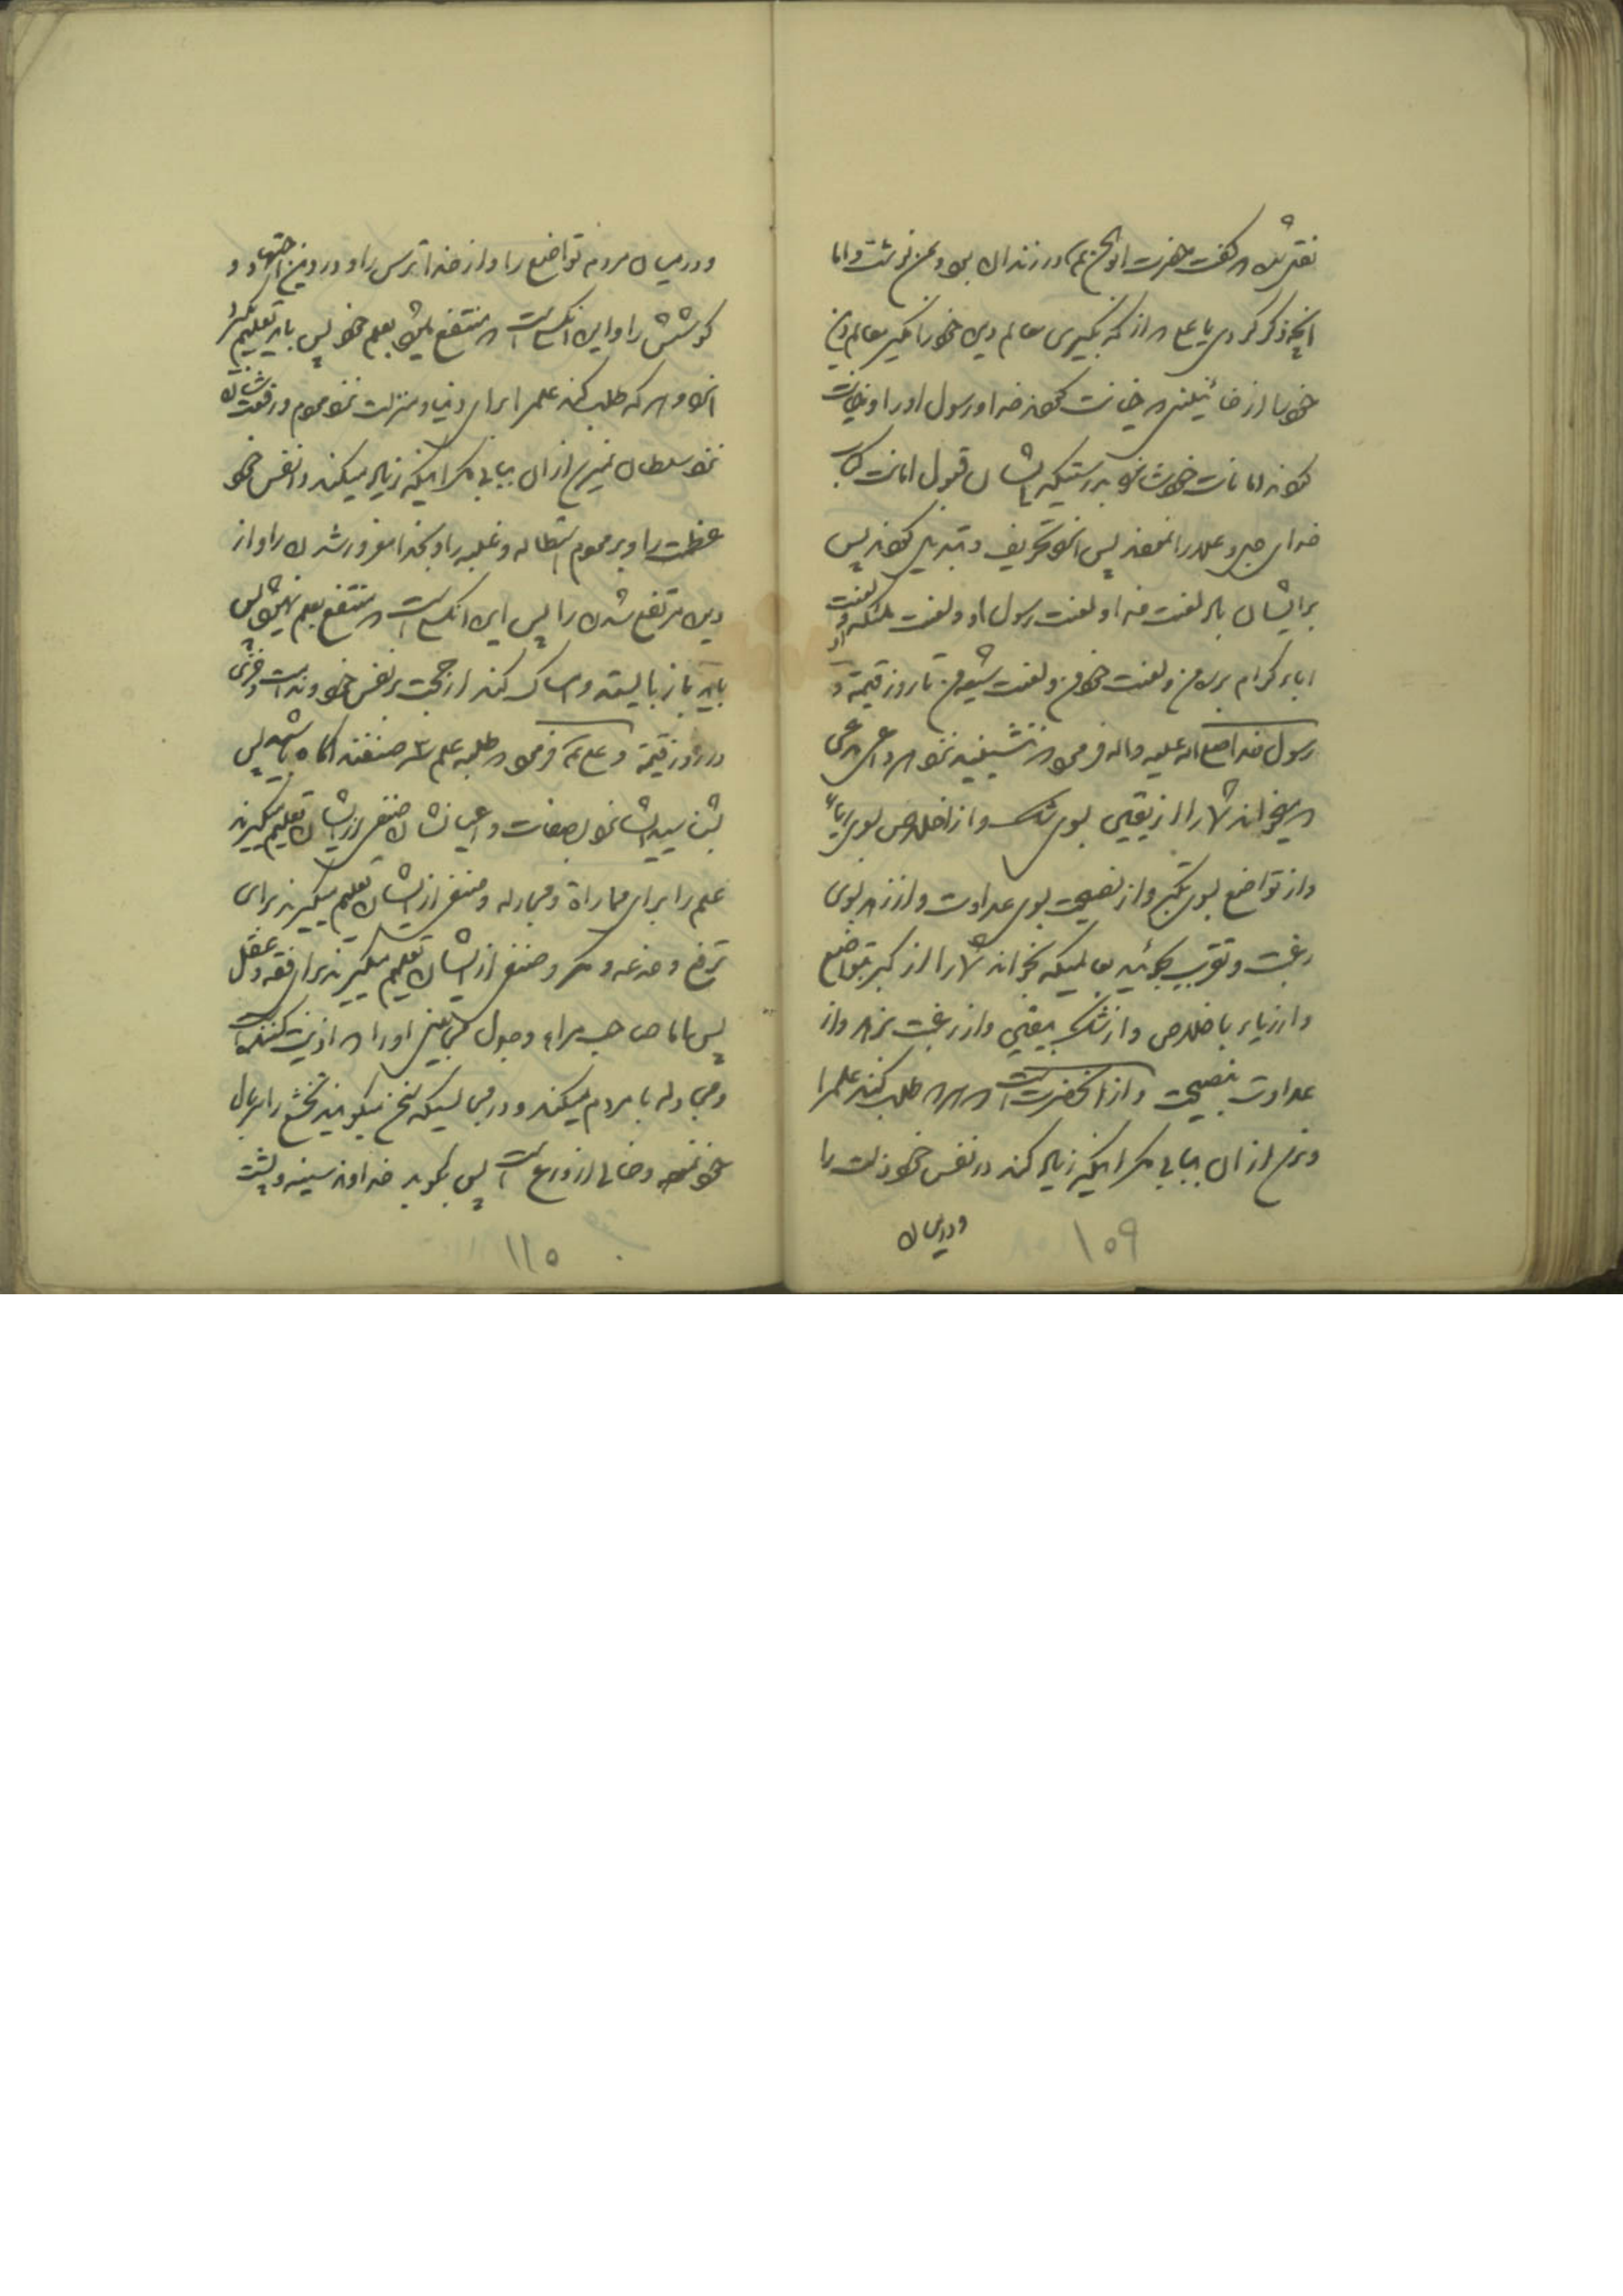 گفت حضرت در زندان بود و بمن نوشت و اما
انچه ذکر کردی یا علی که از که بگیری معالم دین خود را مگیر معالم دین
خود را از خائنین که خیانت کردند خدا و رسول او را و خیانت
کردند امانات خود شانرا بدرستیکه ایشان قبول امانت کتاب
خدای جل و علا را نمودند پس انرا تحریف و تبدیل کردند پس
بر ایشان باد لعنت خدا و لعنت رسول او و لعنت ملئکه و لعنت
اباء کرام بررهٔ من و لعنت خود من و لعنت شیعه من تا روز قیمة و
رسول خدا صلی اله علیه و اله فرمود که ننشینید نزد هر داعی مدعی
که میخواند شما را از یقین بسوی شک و از اخلاص بسوی ریاء
و از تواضع بسوی تکبر و از نصیحت بسوی عداوت و از زهد بسوی
رغبت و تقرب بجوئید بعالمیکه بخواند شما را از کبر بتواضع
و از ریاء باخلاص و از شک بیقین و از رغبت بزهد و از
عداوت بنصیحت و از انحضرت است که هر که طلب کند علم را
و نرسد از ان ببابی مگر اینکه زیاد کند در نفس خود ذلت را
و درمیان
۱۰۹
و درمیان مردم تواضع را و از خدا ترس را و در دین اجتهاد و
کوشش را و این انکسی است که منتفع میشود بعلم خود پس باید تعلیم بگیرد
انرا و هر که طلب کند علم را برای دنیا و منزلت نزد مردم و رفعت شان
نزد سلطان نمیرسد از ان ببابی مگر اینکه زیاد میکند در نفس خود
عظمت را و بر مردم استطاله و غلبه را و بخدا مغرور شدن را و از
دین مرتفع شدن را پس این انکسی است که منتفع بعلم نمیشود پس
باید باز بایستد و امساک کند از حجت بر نفس خود و ندامت و خزی
در روز قیمة و علی فرمود که طلبه علم سه صنفند اگاه باشید پس
بشناسید ایشانرا بصفات و اعیانشان صنفی از ایشان تعلیم میگیرند
علم را برای مماراة و مجادله و صنفی از ایشان تعلیم میگیرند برای
ترفع و خدعه و مکر و صنفی از ایشان تعلیم میگیرند برای فقه و عقل
پس اما صاحب مراء و جدل می بینی او را که اذیت کننده است
و مجادله با مردم میکند و در مجالسیکه سخن میگویند تخشع را سربال
خود نموده و خالی از ورع است پس بکوبد خداوند سینه و پشت
۱۱۰